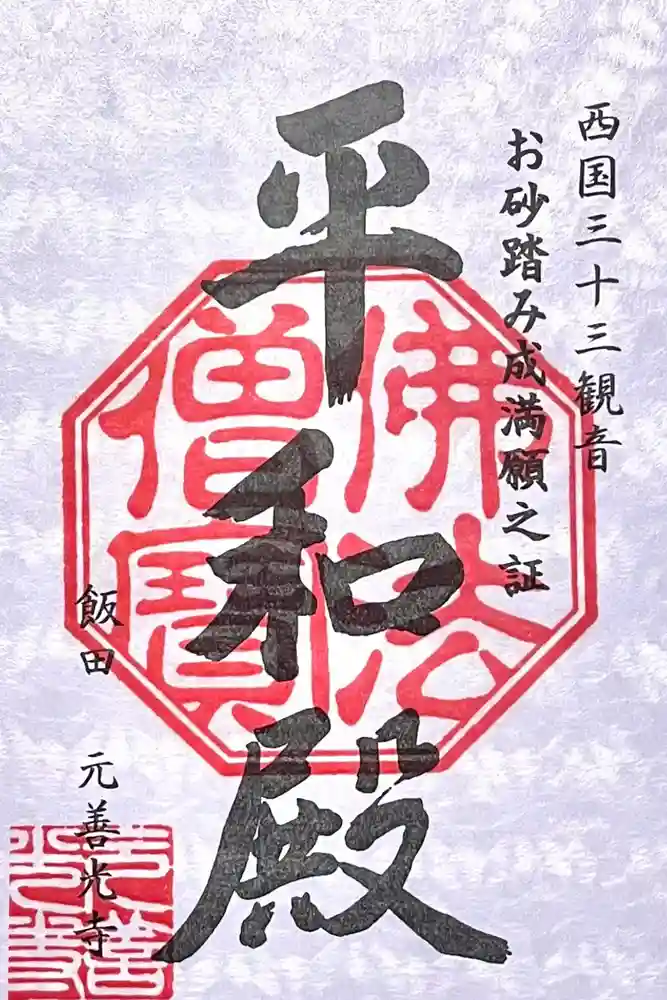 西国三十三観音
お砂踏み成満願之証
平和殿
佛法
僧寳
飯田 元善光寺
元善
光寺